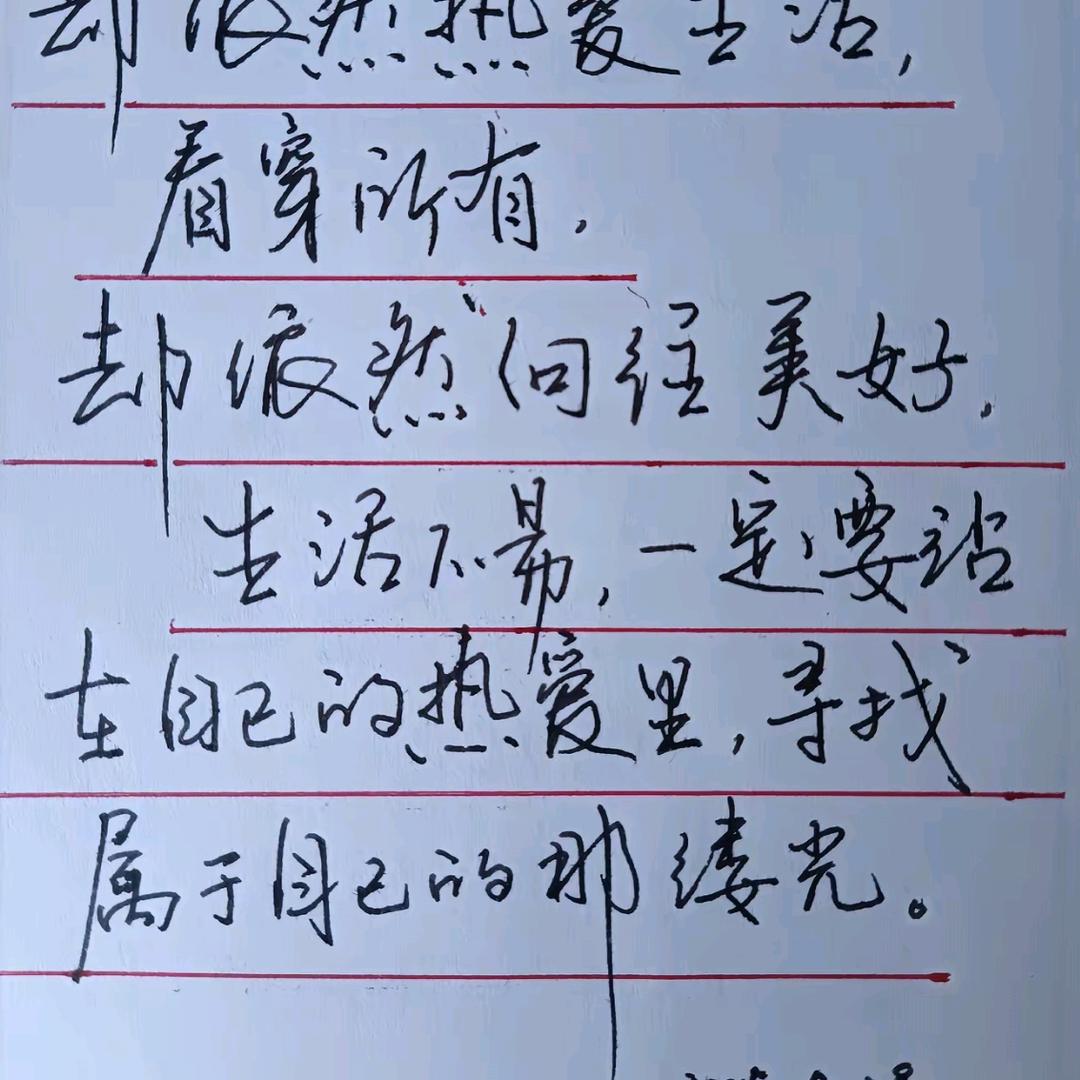 却依然热爱生活，
看穿所有，
却依然向往美好，
生活不易，一定要站
在自己的热爱里，寻找
属于自己的那缕光。